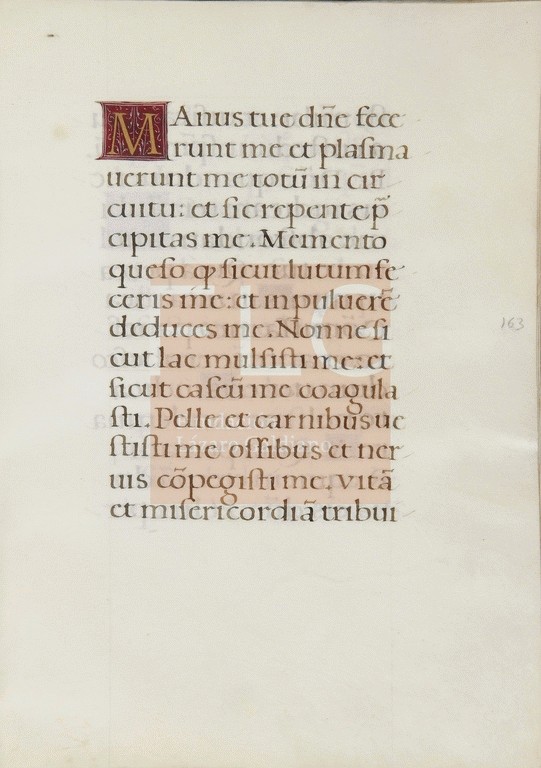 MAnus tue dn̄e fece
runt me et plaſma
uerunt me totū in cir
cuitu: et ſic repente p̄
cipitas me. Memento
queſo ꝙ ſicut lutum fe
ceris me: et in puluerē
deduces me. Nonne ſi
cut lac mulſiſti me: et
ſicut caſeū me coagula
ſti. Pelle et carnibus ue
ſtiſti me oſſibus et ner
uis cōpegiſti me. vitā
et miſericordiā tribui
163
FLG
Lázaro Galdiano